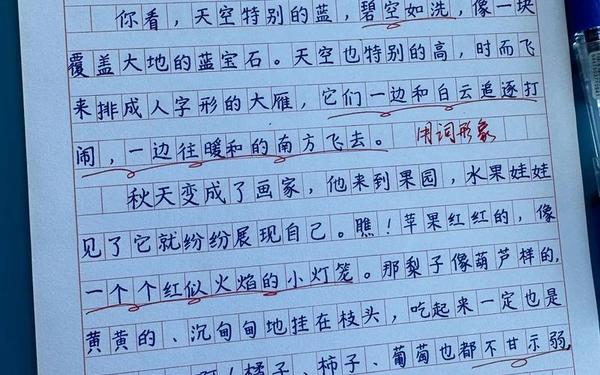 你看，天空特别的蓝，碧空如洗，像一块
覆盖大地的蓝宝石。天空也特别的高，时而飞
来排成人字形的大雁，它们一边和白云追逐打
闹，一边往暖和的南方飞去。 用词形象
秋天变成了画家，他来到果园，水果娃娃
见了它就纷纷展现自己。瞧！苹果红红的，像
一个个红似火焰的小灯笼。那梨子像葫芦样的，
黄黄的、沉甸甸地挂在枝头，吃起来一定也是
啊！橘子、柿子、葡萄也都不甘示弱，